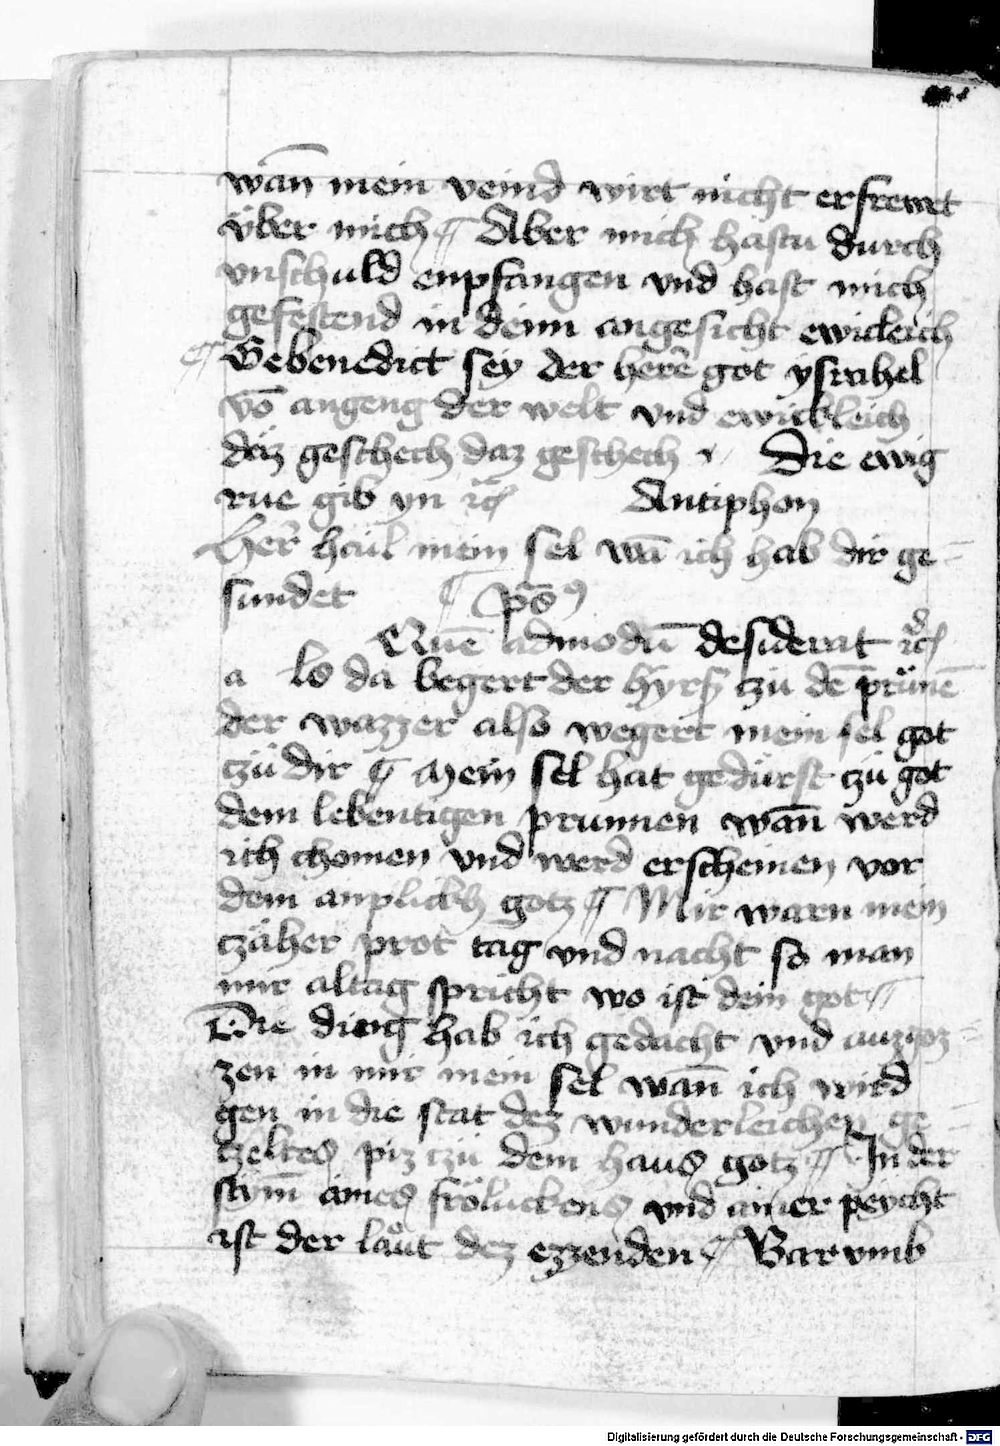 wan̄ mein veind wirt nicht erfrewt
v̈ber mich ¶ Aber mich hastu durch
vnschuld enpfangen vnd hast mich
gefestend in deim angesicht ewicleich
¶ Gebenedict sey der herē got ysrahel
võ angeng der welt vnd ewickleich
daz geschech daz geschech Die ewig
rue gib yn ꝛc̄ Antiphon
Her̄ hail mein sel wā ich hab dir ge=
sundet ¶ ps̄
Quē admodū desiderat ꝛc̄
a ls da begert der hyrs tzü dē prünē
der wazzer also wegert mein sel got
tzü dir ¶ Mein sel hat gedürst tzü got
dem lebentigen prunnen wan̄ werd
ich chomen vnd werd erscheinen vor
dem anplickh gotz ¶ Mir warn mein
tzäher prot tag vnd nacht so man
mir altag spricht wo ist dein got ¶
Die ding hab ich gedacht vnd auzgoz=
zen in mir mein sel wan̄ ich wird
gen in die stat dez wunderleichen ge=
tzeltes piz tzü dem haus gotz ¶ In der
stym̄ aines fröluckens vnd ainer peycht
ist der laüt dez ezzenden ¶ Warvmb
Digitalisierung gefördert durch die Deutsche Forschungsgemeinschaft - DFG